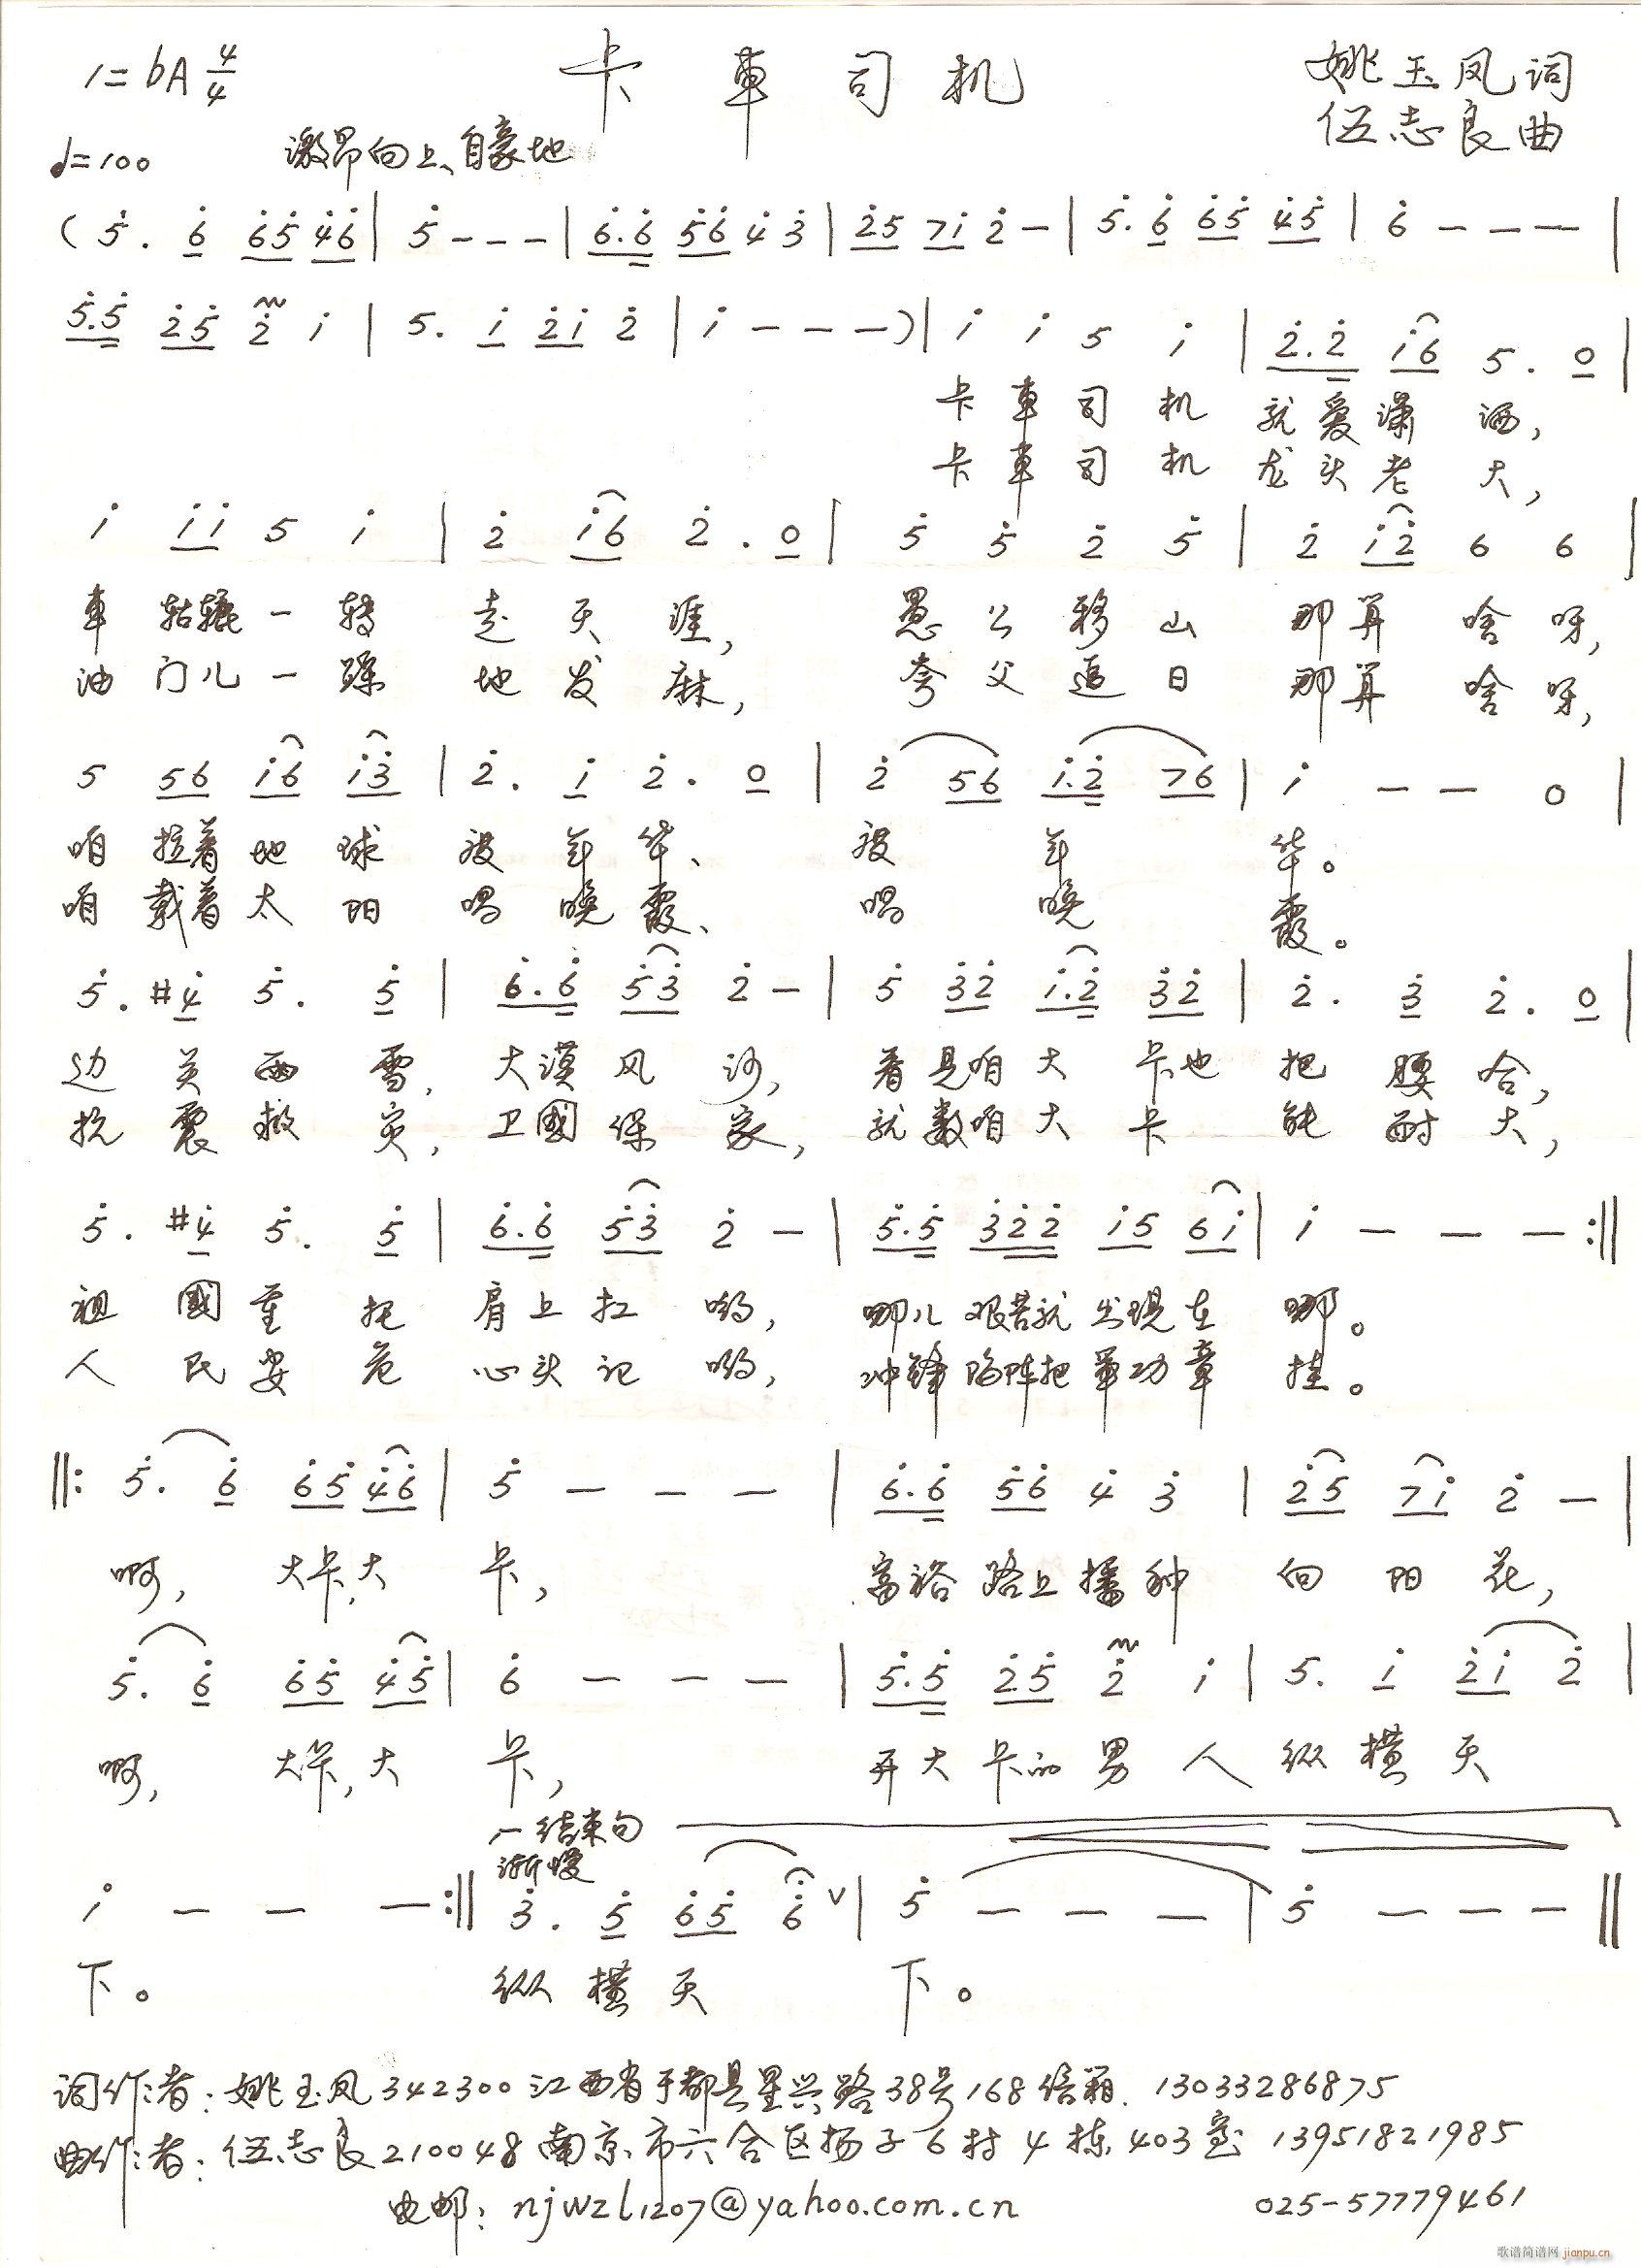 1=bA 4/4 卡車司机 姚玉凤词
伍志良曲
♩=100 激昂向上、自豪地
(5̇. 6̇ 6̇5̇ 4̇6̇ | 5̇ - - - | 6̇.6̇ 5̇6̇ 4̇ 3̇ | 2̇5 7i 2̇ - | 5̇. 6̇ 6̇5̇ 4̇5̇ | 6̇ - - - |
5̇.5̇ 2̇5̇ 2̇ i | 5. i 2̇i 2̇ | i - - - ) | i i 5 i | 2̇.2̇ i6 5. 0 |
卡車司机 就爱潇洒，
卡車司机 龙头老大，
i ii 5 i | 2̇ i6 2̇. 0 | 5̇ 5̇ 2̇ 5̇ | 2̇ i2̇ 6 6 |
車轱辘一转 走天涯， 愚公移山 那算啥呀，
油门儿一踩 地发麻， 夸父追日 那算啥呀，
5 56 i6 i3̇ | 2̇. i 2̇. 0 | 2̇ 56 i.2̇ 76 | i - - 0 |
咱拉着地球 追年华、 追年华。
咱载着太阳 唱晚霞、 唱晚霞。
5̇. #4̇ 5̇. 5̇ | 6̇.6̇ 5̇3̇ 2̇ - | 5̇ 3̇2̇ i.2̇ 3̇2̇ | 2̇. 3̇ 2̇. 0 |
边关雨雪， 大漠风沙， 看见咱大卡也把腰哈，
抗震救灾， 卫國保家， 就数咱大卡能耐大，
5̇. #4̇ 5̇. 5̇ | 6̇.6̇ 5̇3̇ 2̇ - | 5̇.5̇ 3̇2̇2̇ i5 6i | i - - - :||
祖國重托 肩上扛哟， 哪儿艰苦就出现在哪。
人民安危 心头记哟， 冲锋陷阵把军功章挂。
||: 5̇. 6̇ 6̇5̇ 4̇6̇ | 5̇ - - - | 6̇.6̇ 5̇6̇ 4̇ 3̇ | 2̇5 7i 2̇ - |
啊， 大卡，大卡， 富裕路上播种向阳花，
5̇. 6̇ 6̇5̇ 4̇5̇ | 6̇ - - - | 5̇.5̇ 2̇5̇ 2̇ i | 5. i 2̇i 2̇ |
啊， 大卡，大卡， 开大卡的男人纵横天
结束句
渐慢
i - - - :|| 3̇. 5̇ 6̇5̇ 6̇ ∨ | 5̇ - - - | 5̇ - - - ||
下。 纵横天下。
词作者：姚玉凤 342300 江西省于都县星兴路38号168信箱. 13033286875
曲作者：伍志良 210048 南京市六合区扬子6村4栋403室 13951821985
电邮：njwzl1207@yahoo.com.cn 025-57779461
歌谱简谱网 jianpu.cn